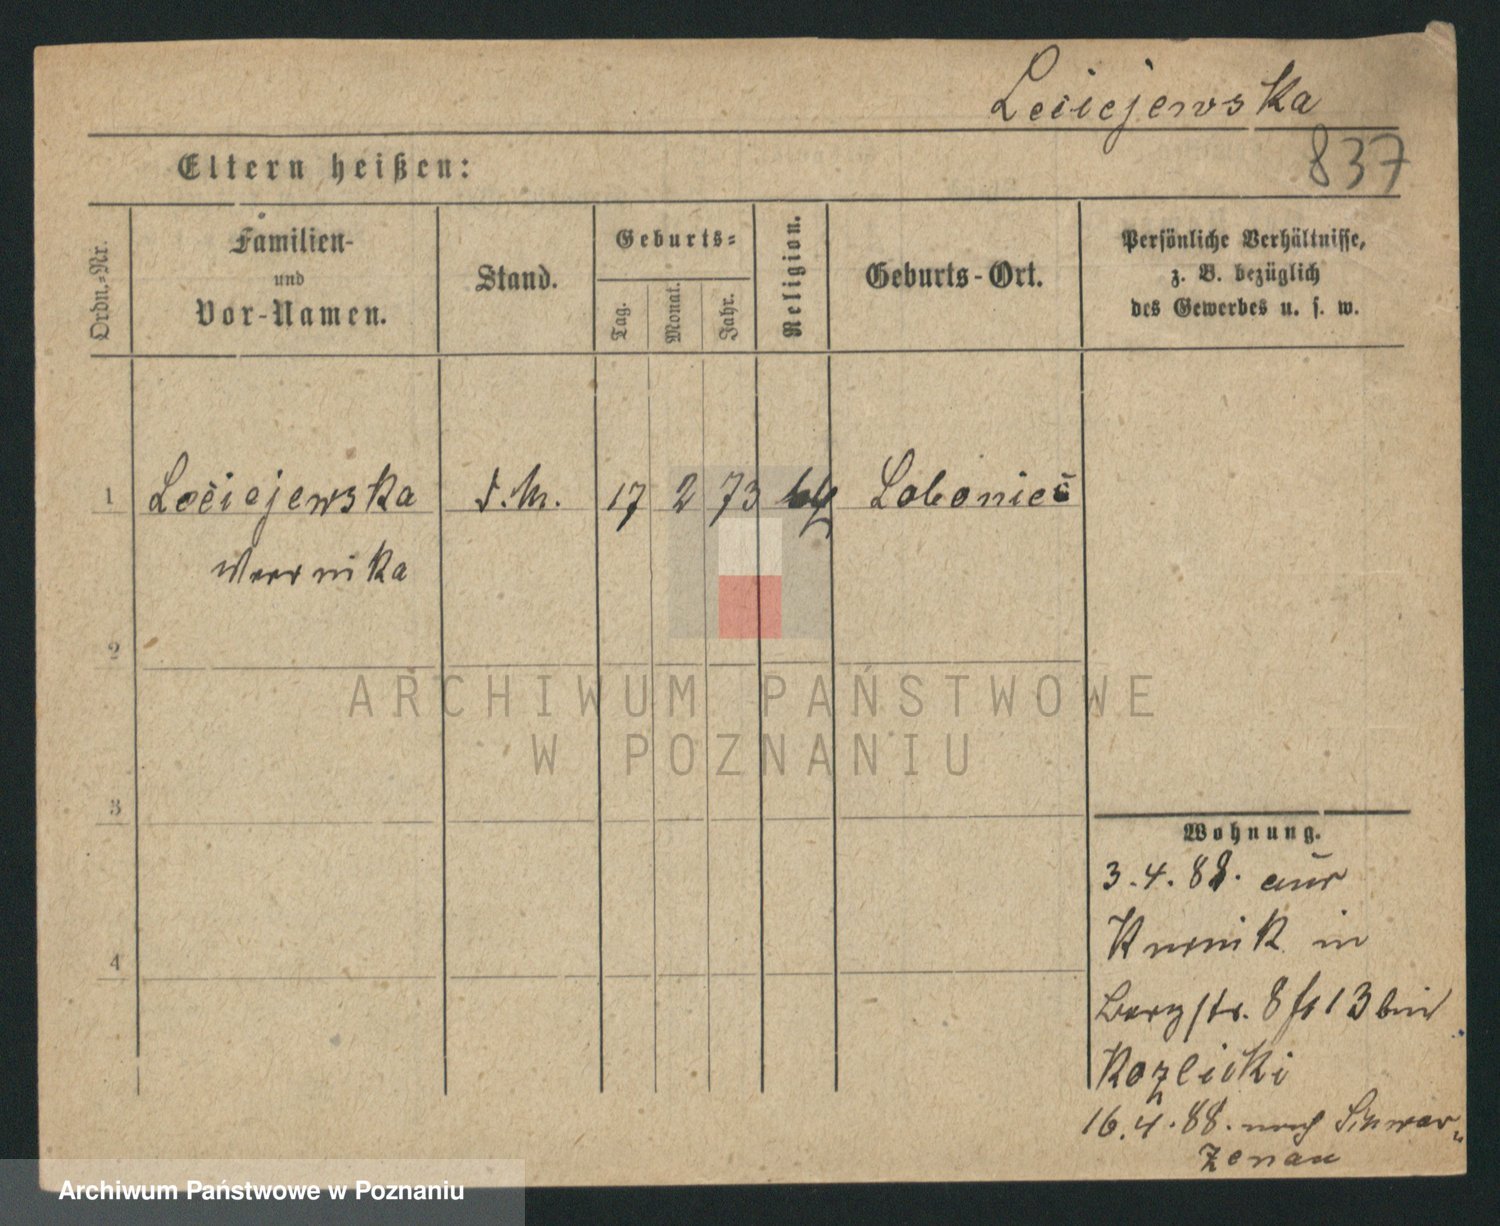 Leciejewska
837
Eltern heißen:
Ordn.-Nr.
Familien-
und
Vor-Namen.
Stand.
Geburts-
Tag.
Monat.
Jahr.
Religion.
Geburts-Ort.
Persönliche Verhältnisse,
z. B. bezüglich
des Gewerbes u. s. w.
1 Leciejewska d. M. 17 2 73 kth Lobonice
Weronika
2
ARCHIWUM PAŃSTWOWE
W POZNANIU
3
4
Wohnung.
3.4.88. aus
Kurnik in
Bergstr. 8 13 bei
Kozlicki
16.4.88. nach Schwar-
zenau
Archiwum Państwowe w Poznaniu